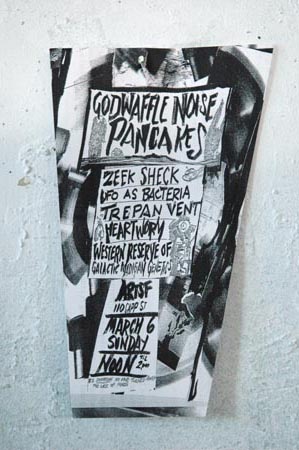 GODWAFFLE NOISE
PANCAKES
ZEEK SHECK
UFO AS BACTERIA
TREPAN VENT
HEARTWORM
WESTERN RESERVE OF
GALACTIC
ARTSF
110 CAPP ST
MARCH 6
SUNDAY
NOON
2PM
NO ONE TURNED AWAY